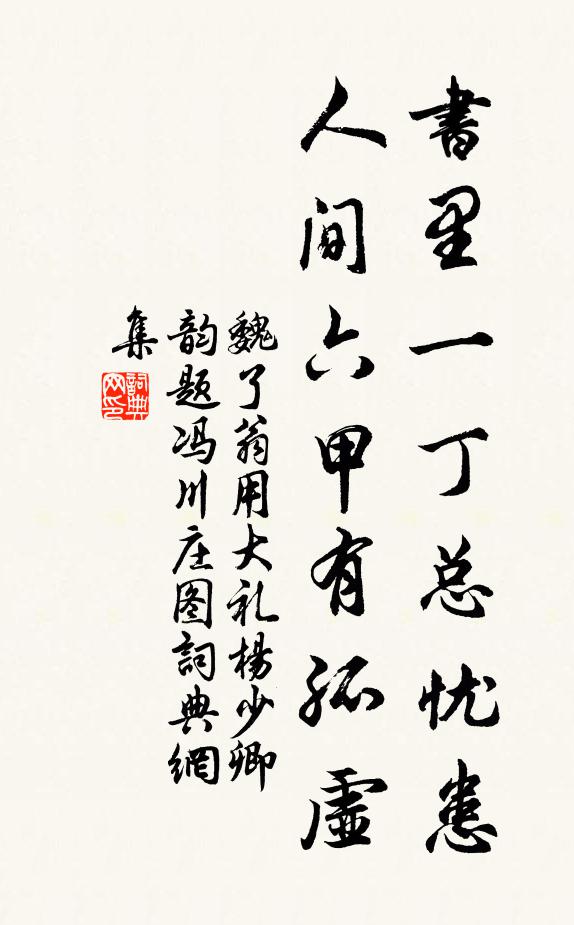 書里一丁总忧患
人间六甲有孤虚
魏了翁用大礼楊少卿
韵题冯川庄图詞典網
集
詞典
网印